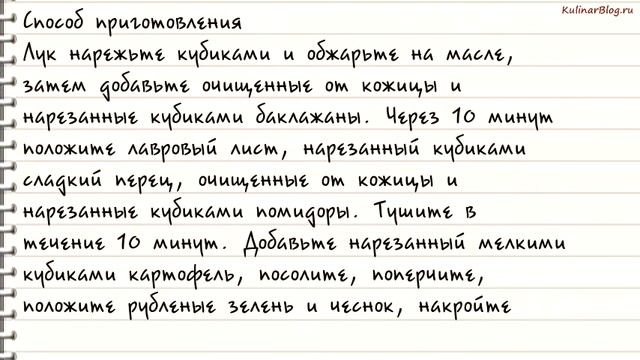 KulinarBlog.ru
Способ приготовления
Лук нарежьте кубиками и обжарьте на масле,
затем добавьте очищенные от кожицы и
нарезанные кубиками баклажаны. Через 10 минут
положите лавровый лист, нарезанный кубиками
сладкий перец, очищенные от кожицы и
нарезанные кубиками помидоры. Тушите в
течение 10 минут. Добавьте нарезанный мелкими
кубиками картофель, посолите, поперчите,
положите рубленые зелень и чеснок, накройте